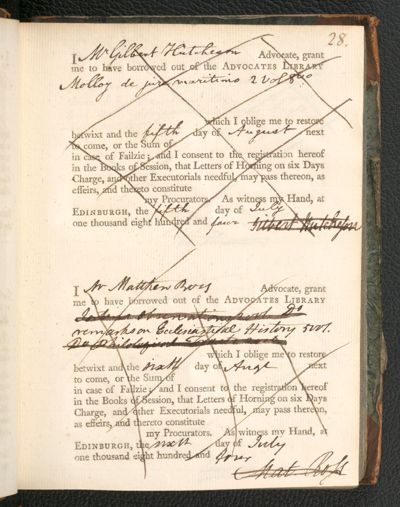 28.
I Mr Gilbert Hutcheson Advocate, grant
me to have borrowed out of the ADVOCATES LIBRARY
Molloy de jure maritimo 2 vol 8vo
which I oblige me to restore
betwixt and the fifth day of August next
to come, or the Sum of
in case of Failzie; and I consent to the registration hereof
in the Books of Session, that Letters of Horning on six Days
Charge, and other Executorials needful, may pass thereon, as
effeirs, and thereto constitute
my Procurators. As witness my Hand, at
EDINBURGH, the fifth day of July
one thousand eight hundred and four Gilbert Hutcheson
I Mr Matthew Ross Advocate, grant
me to have borrowed out of the ADVOCATES LIBRARY
Do
remarks on Ecclesiastical History 5 vol.
Do Philological
which I oblige me to restore
betwixt and the sixth day of Augt next
to come, or the Sum of
in case of Failzie; and I consent to the registration hereof
in the Books of Session, that Letters of Horning on six Days
Charge, and other Executorials needful, may pass thereon,
as effeirs, and thereto constitute
my Procurators. As witness my Hand, at
EDINBURGH, the sixth day of July
one thousand eight hundred and four
Mat. Ross